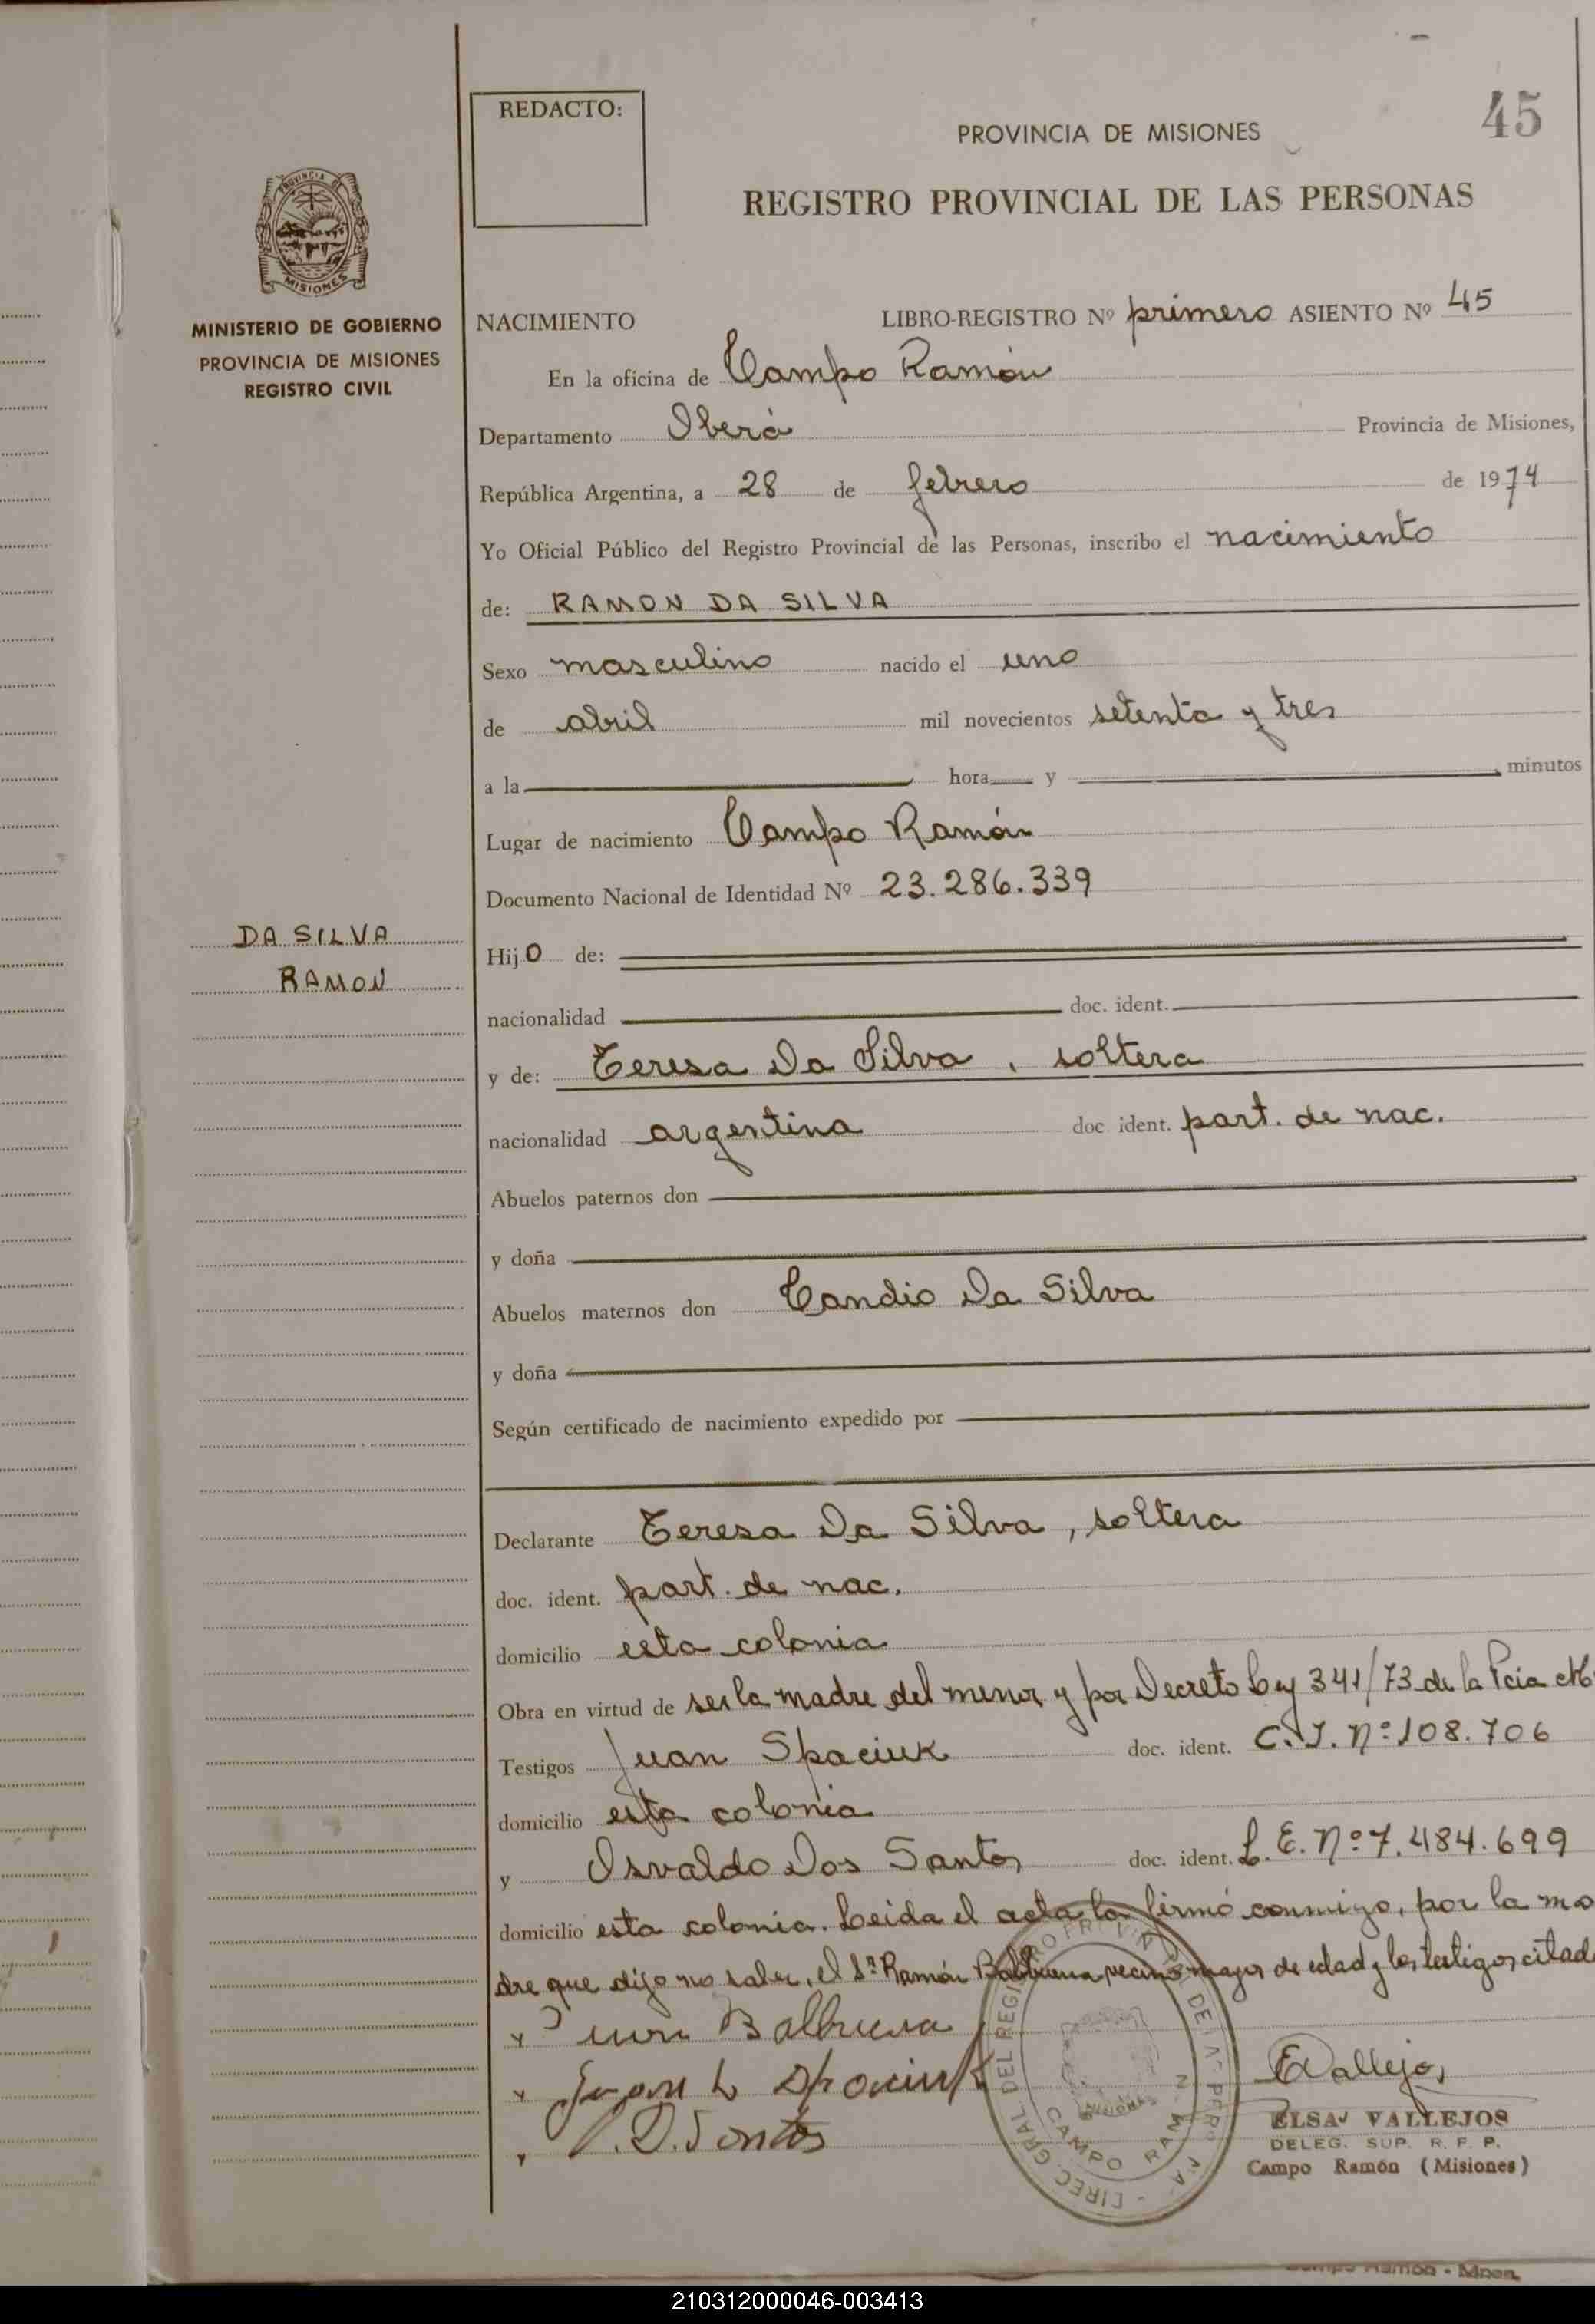 45
REDACTO:
PROVINCIA DE MISIONES
REGISTRO PROVINCIAL DE LAS PERSONAS
PROVINCIA DE
MISIONES
MINISTERIO DE GOBIERNO
PROVINCIA DE MISIONES
REGISTRO CIVIL
NACIMIENTO LIBRO-REGISTRO Nº primero ASIENTO Nº 45
En la oficina de Campo Ramón
Departamento Oberá Provincia de Misiones,
República Argentina, a 28 de febrero de 1974
Yo Oficial Público del Registro Provincial de las Personas, inscribo el nacimiento
de: RAMON DA SILVA
Sexo masculino nacido el uno
de abril mil novecientos setenta y tres
a la hora y minutos
Lugar de nacimiento Campo Ramón
Documento Nacional de Identidad Nº 23.286.339
DA SILVA
RAMON
Hijo de:
nacionalidad doc. ident.
y de: Teresa Da Silva, soltera
nacionalidad argentina doc ident. part. de nac.
Abuelos paternos don
y doña
Abuelos maternos don Candio Da Silva
y doña
Según certificado de nacimiento expedido por
Declarante Teresa Da Silva, soltera
doc. ident. part. de nac.
domicilio esta colonia
Obra en virtud de ser la madre del menor y por Decreto Ley 341/73 de la Pcia
Testigos Juan Spaciuk doc. ident. C.I. Nº 108.706
domicilio esta colonia
y Osvaldo Dos Santos doc. ident. L.E. Nº 7.484.699
domicilio esta colonia. Leida el acta la firmó conmigo, por la ma
dre que dijo no saber, el Sr. Ramón Balbuena vecino mayor de edad y los testigos citad
Balbuena
Juan Spaciuk
O.D. Santos
EVallejos
ELSA VALLEJOS
DELEG. SUP. R. P. P.
Campo Ramón (Misiones)
DIREC. GRAL. DEL REGISTRO PROVINCIAL DE LAS PERSONAS
MISIONES
CAMPO RAMON
Campo Ramón - Mnes.
210312000046-003413